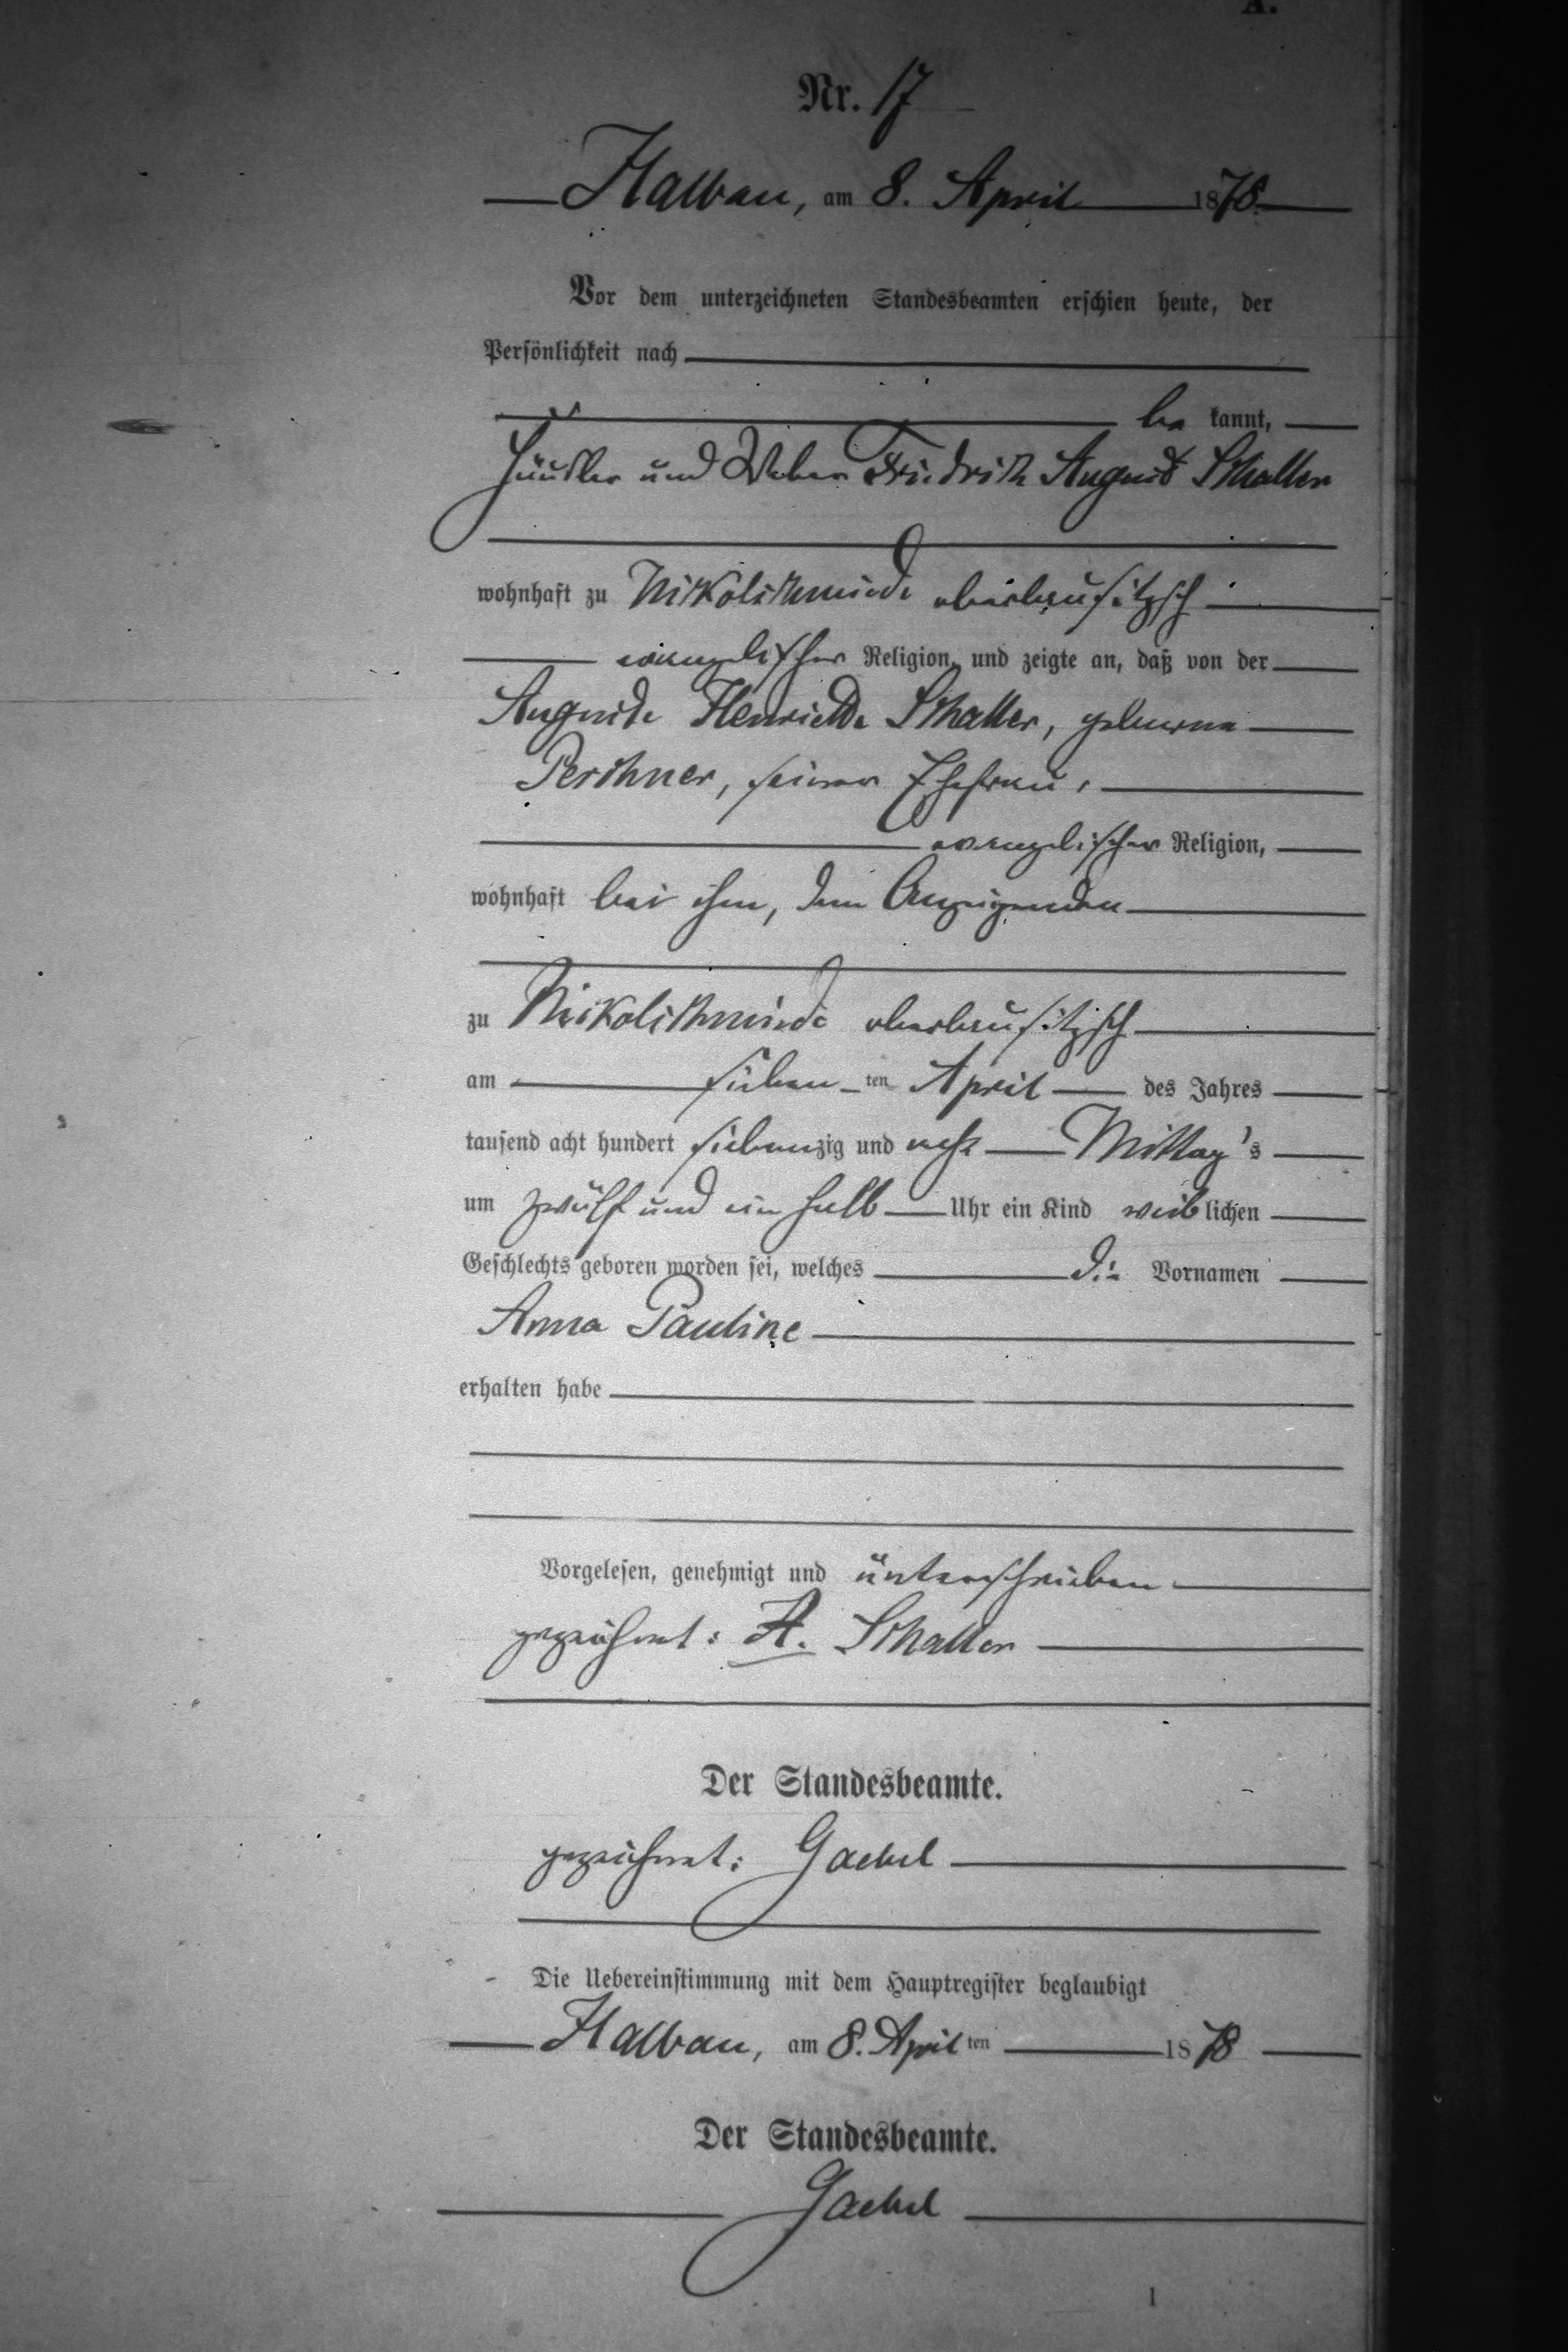 A.
Nr. 17
Halbau, am 8. April 1878.
Vor dem unterzeichneten Standesbeamten erschien heute, der
Persönlichkeit nach
be kannt,
Häusler und Weber Friedrich August Schaller
wohnhaft zu Nikolschmiede oberlausitzisch
evangelischer Religion, und zeigte an, daß von der
Auguste Henriette Schaller, geborene
Perschner, seiner Ehefrau,
evangelischer Religion,
wohnhaft bei ihm, dem Anzeigenden
zu Nikolschmiede oberlausitzisch
am sieben ten April des Jahres
tausend acht hundert siebenzig und acht Mittag's
um zwölf und ein halb Uhr ein Kind weib lichen
Geschlechts geboren worden sei, welches die Vornamen
Anna Pauline
erhalten habe
Vorgelesen, genehmigt und unterschrieben
gezeichnet: A. Schaller
Der Standesbeamte.
gezeichnet: Gaebel
Die Uebereinstimmung mit dem Hauptregister beglaubigt
Halbau, am 8. April ten 1878
Der Standesbeamte.
Gaebel
1